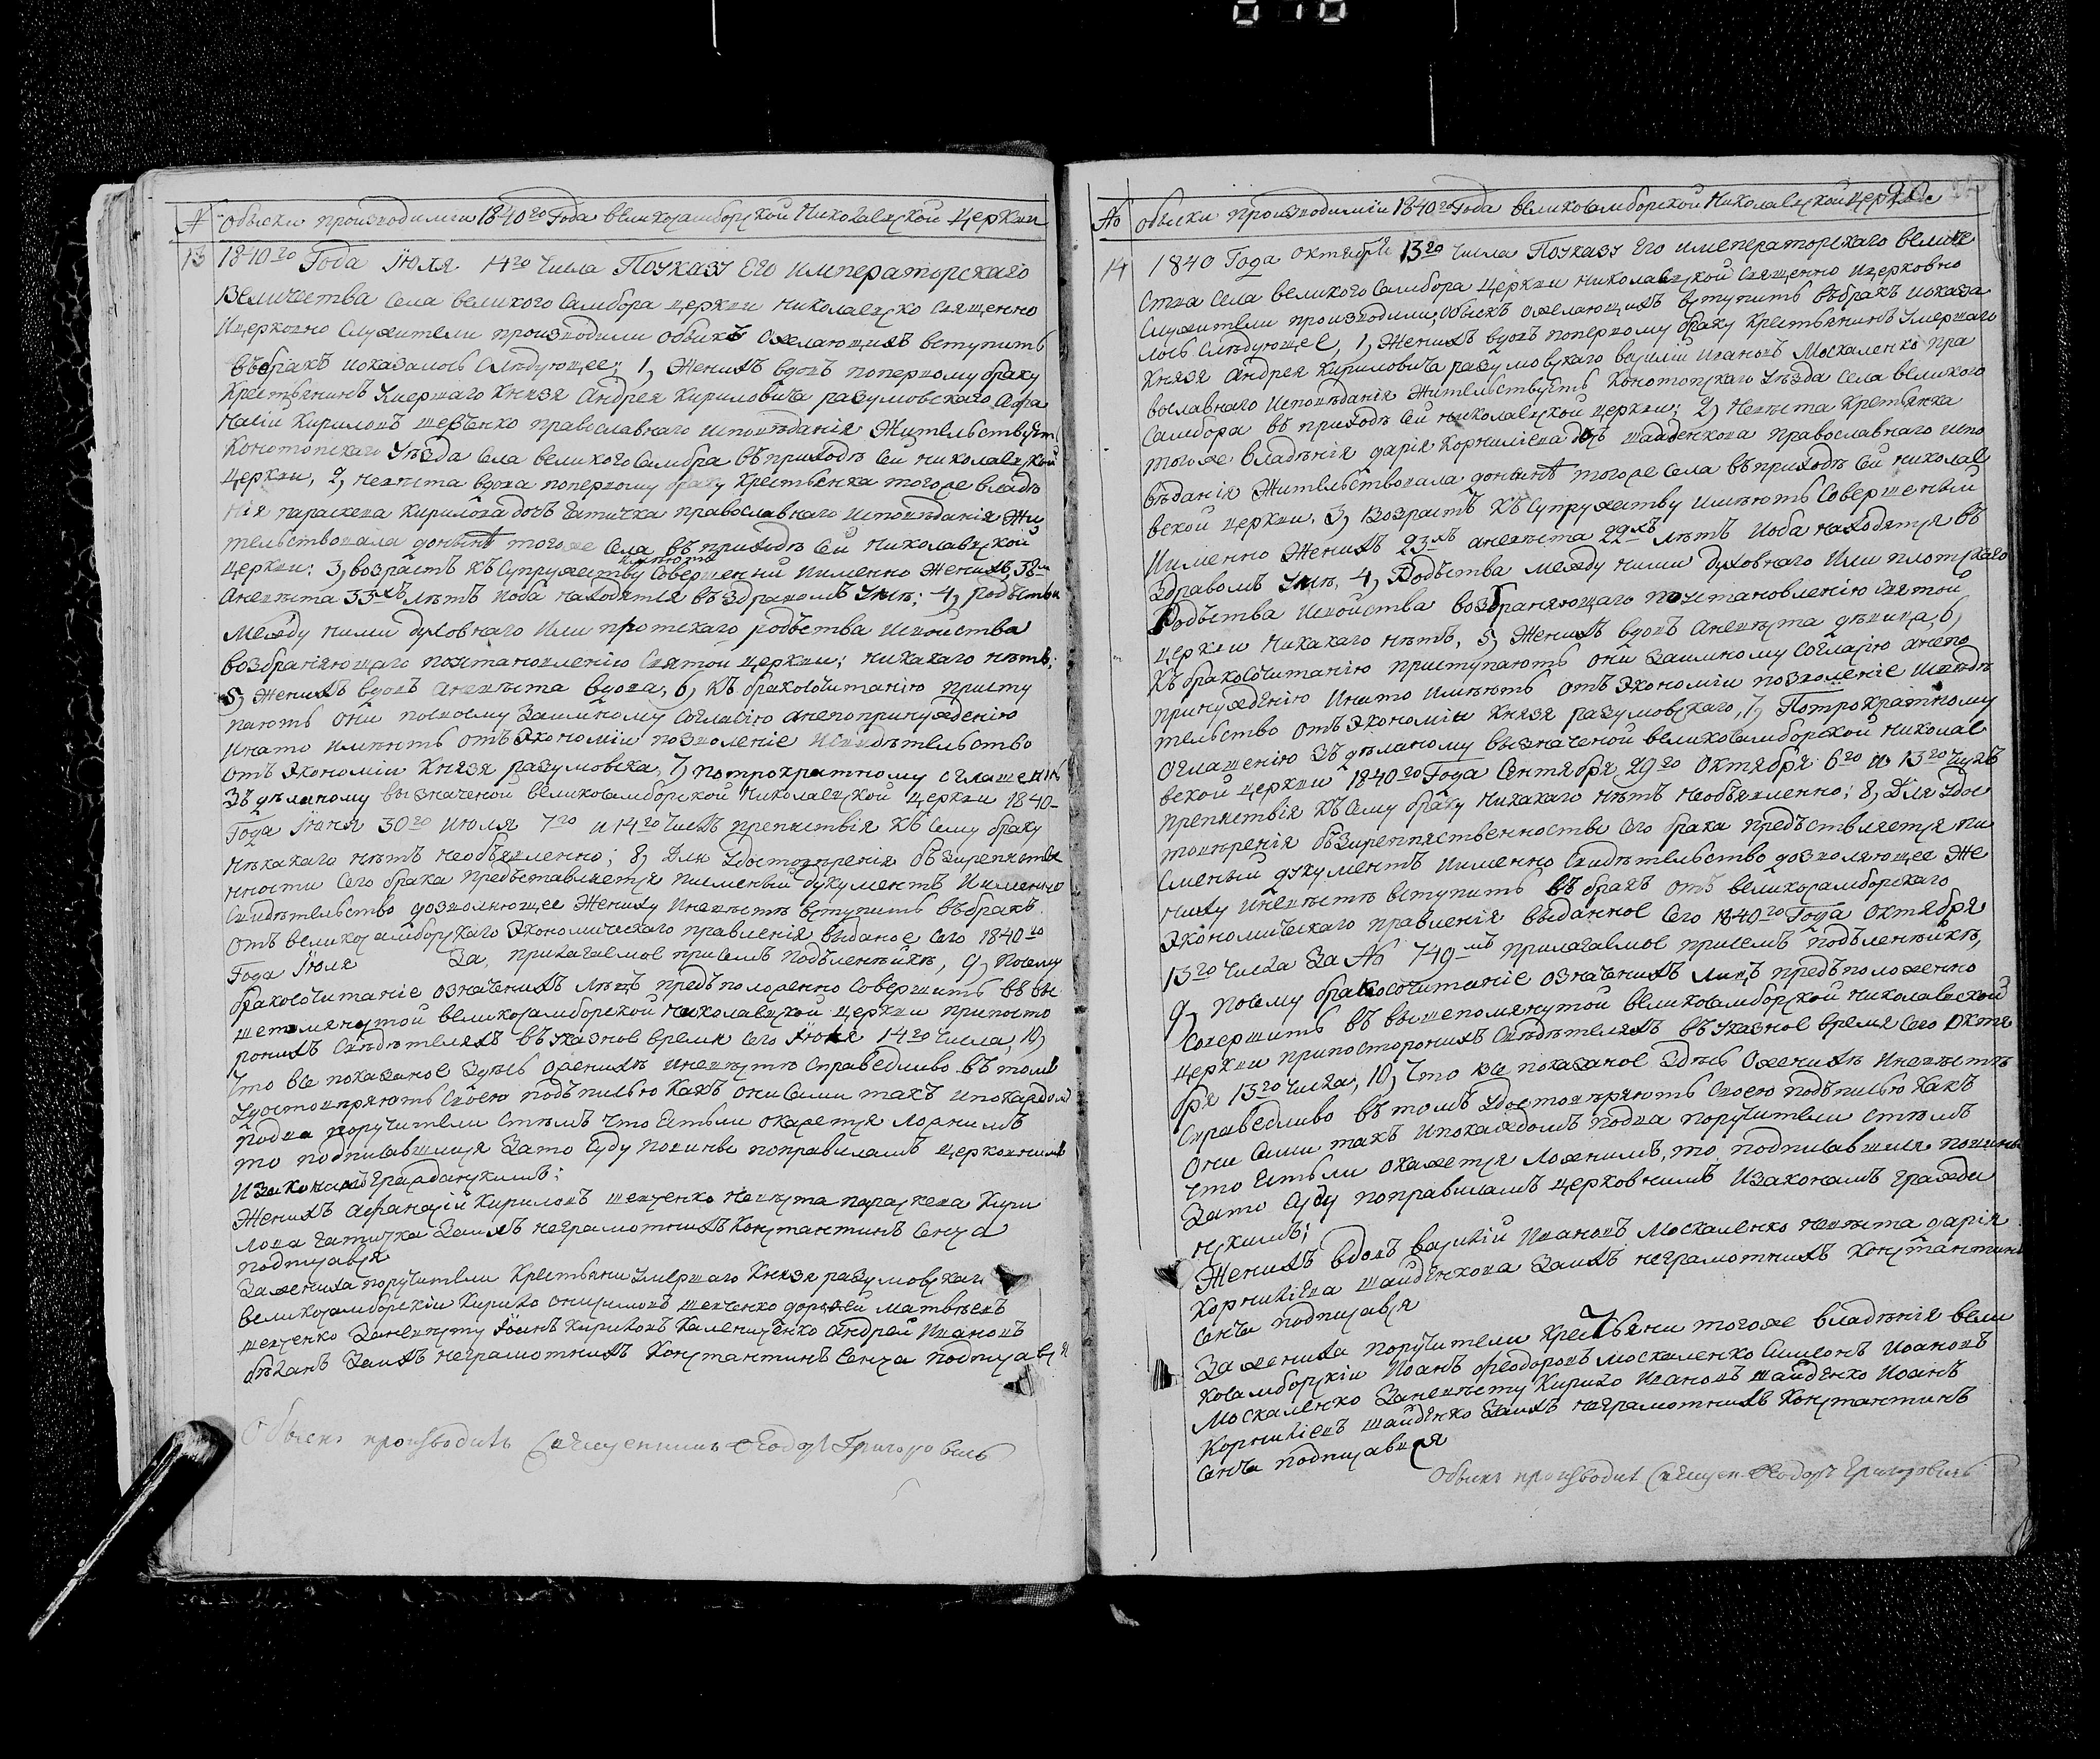 № Обыски производимыи 1840го Года великосамборской Николаевской Церкви
13 1840го Года Июля 14го Числа По указу Его императорского
Величества села великого Самбора церкви николаевско священно
ицерковно служители производили обыскъ ожелающихъ вступить
въбракъ иоказалось слѣдующее; 1, Женихъ вдовъ попервому браку
Крестьянинъ Умершаго Князя Андрея Кириловича разумовского Афа
насій Кириловъ шевченко православнаго исповѣданія Жительствуетъ
Конотопскаго Уѣзда села великого Самбора въ приходѣ сей николаевской
церкви, 2, невѣста вдова поперву браку крестьянка тогоже владѣ
нія параскева Кирилова дочъ Гатичка православнаго исповѣданія Жи
тельствовала донынѣ тогоже села въ приходѣ сей николаевской
имѣютъ
церкви: 3, возрастъ къ Супружеству совершенній Иименно Женихъ 38
аневѣста 33хъ лѣтъ иоба находятся въздравомъ Умѣ; 4, родъства
между ними духовнаго Или плотскаго родъства исвойства
возбраняющаго поустановленію Святой церкви; никакаго нѣтъ;
5, Женихъ вдовъ аневѣста вдова, 6, къ бракосочитанію присту
паютъ они посвоему Заимному согласію анепопринужденію
инато имѣютъ отъ Экономіи позволеніе исвидѣтельство
отъ Экономіи Князя разумовска, 7, потрократному оглашенію
Зъдѣланому вызначеной великосамборской Николаевской церкви 1840
Года Іюня 30го Июля 7го и 14го Числъ препятствія къ сему браку
нѣкакаго нѣтъ необъявленно; 8, Для Удостовѣренія безпрепятстве
нности сего брака предъставляется писменый дукументъ Иименно
Свидѣтельство дозволяющее Жениху иневѣстѣ вступить въбракъ
отъ великосамборскаго Экономическаго правленія выданое сего 1840го
Года Іюля За, прилагаемое присемъ подъленѣикѣ, 9, посему
бракосочитаніе означенихъ лицъ предъположенно Совершить въ вы
шепомянутой великосамборской николаевской церкви припосто
ронихъ Свѣдѣтеляхъ въ указное время сего Июля 14го числа, 10,
Что все показаное здѣсь оженихѣ иневѣстѣ справедливо въ томъ
Удостовѣряютъ своею подъписью какъ они сами такъ ипокаждомъ
подва поручители стѣмъ что естьли окажется ложнимъ
то подписавшияся Зато суду повинны поправиламъ церковнимъ
и Законамъ Гражданскимъ;
Женихъ афанасій Кириловъ шевченко невѣста параскева Кири
лова Гатичка Заихъ неграмотнихъ Константинъ Сенча
подписався
Зажениха поручители Крестьяни умершаго Князя разумовскаго
великосамборскіи Кирило онисимовъ шевченко дорофей матвѣевъ
шевченко Заневѣсту Іоанъ Кириловъ Каленченко андрей Ивановъ
бѣланъ Заихъ неграмотнихъ Константинъ Сенча подписався
Обыскъ производилъ Священникъ Феодоръ Григоровичъ
№ обыски производимыи 1840го Года великосамборской Николаевской церкви
14 1840 Года октября 13го числа По указу Его императорскаго величе
ства села великого Самбора церкви николаевской священно ицерковно
служители производили, обыскъ ожелающихъ вступить въбракъ иоказа
лось слѣдующее, 1, Женихъ вдовъ поперному браку Крестьянинъ Умершаго
Князя Андрея Кириловича разумовскаго василій Ивановъ Москаленко пра
вославнаго исповѣданія Жительствуетъ Конотопскаго Уѣзда села великого
Самбора въ приходѣ сей николаевской церкви; 2, Невѣста Крестьянка
тогоже владѣнія дарія Корниліева дочъ шайденкова православнаго испо
вѣданія Жительствовала донынѣ тогоже села въ приходѣ сей николае
вской церкви. 3, Возрастъ къ Супружеству имѣютъ Совершеный
Иименно Женихъ 23хъ аневѣста 22хъ лѣтъ иоба находятся въ
Здравомъ Умѣ, 4, Родъства между ними духовнаго Или плотскаго
Родъства исвойства возбраняющаго поустановленію святой
церкви никакаго нѣтъ, 5, Женихъ вдовъ аневѣста дѣвица, 6,
къ бракосочитанію приступаютъ они заимному согласію анепо
принужденію инато имѣютъ отъ Экономіи позволеніе исвидѣ
тельство отъ Экономіи Князя разумовскаго, 7, Потрократному
оглашенію Зъдѣланому вызначеной великосамборской николае
вской церкви 1840го Года Сентября 29го октября 6го и 13го числъ
препятствія къ сему браку никакаго нѣтъ необъявленно; 8, Для Удос
товѣренія безпрепятственности сего брака предъставляется пи
сменый дукументъ Иименно Свидѣтельство дозволяющее Же
ниху иневѣстѣ вступить въ бракъ отъ великосамборскаго
Экономическаго правленія выданное сего 1840го Года октября
13го числа За № 749мъ прилагаемое присемъ подъленѣикѣ,
9, посему бракосочитаніе означенихъ лицъ предъположенно
совершить въ вышепомянутой великосамборской николаевской
церкви припосторонихъ Свѣдѣтеляхъ въ указное время сего Октя
бря 13го числа, 10, Что все показаное здѣсь оженихѣ иневѣстѣ
справедливо въ томъ Удостовѣряютъ своею подъписью какъ
они сами такъ ипокаждомъ подва поручители стѣмъ
что естьли окажется ложнимъ, то, подписавшияся повинны
Зато суду поправиламъ церковнимъ Изаконамъ гражда
нскимъ;
Женихъ вдовъ василій Ивановъ Москаленко невѣста дарія
Корниліева шайденкова Заихъ неграмотнихъ Константинъ
Сенча подписався
Зажениха поручители крестьяни тогоже владѣнія вели
косамборскіи Иоанъ феодоровъ москаленко Симеонъ Иоановъ
Москаленко Заневѣсту Кирило Ивановъ шайденко Иоанъ
Корниліевъ шайденко Заихъ неграмотнихъ Константинъ
Сенча подписався
Обыскъ производилъ Священ. Феодоръ Григоровичъ